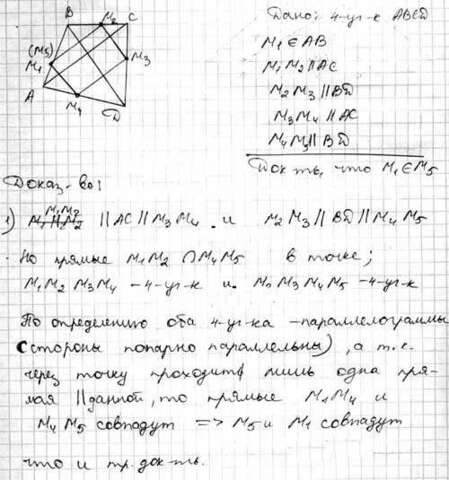 B M₂ C
(M₅)
M₁ M₃
A
M₄ D
Дано: 4-уг-к ABCD
M₁ ∈ AB
M₁M₂ || AC
M₂M₃ || BD
M₃M₄ || AC
M₄M₅ || BD
Док-ть, что M₁ ∈ M₅
Доказ-во:
1) M₁M₂ || AC || M₃M₄ и M₂M₃ || BD || M₄M₅
Но прямые M₁M₂ ∩ M₄M₅ в точке;
M₁M₂M₃M₄ - 4-уг-к и M₂M₃M₄M₅ - 4-уг-к
По определению оба 4-уг-ка - параллелограммы
(стороны попарно параллельны), а т.к.
через точку проходит лишь одна пря-
мая || данной, то прямые M₁M₄ и
M₄M₅ совпадут => M₅ и M₁ совпадут
что и тр. док-ть.